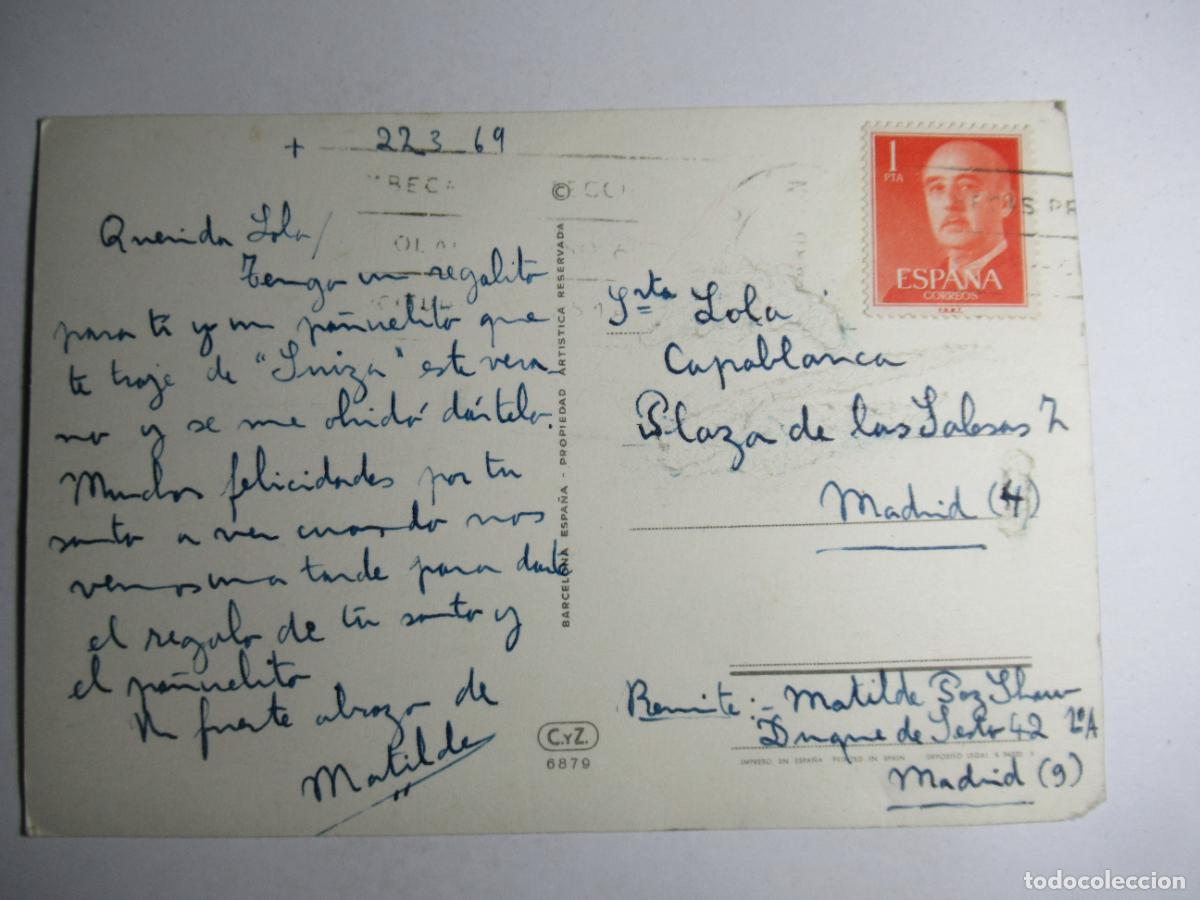 + 22 3 69
Querida Lola/
Tengo un regalito
para ti y un pañuelito que
te traje de "Suiza" este vera-
no y se me olvidó dártelo.
Muchas felicidades por tu
santo a ver cuando nos
vemos una tarde para darte
el regalo de tu santo y
el pañuelito
Un fuerte abrazo de
Matilde
©
BARCELONA ESPAÑA - PROPIEDAD ARTISTICA RESERVADA
C.YZ.
6879
1
PTA
ESPAÑA
CORREOS
F.N.M.T.
Srta Lola
Capablanca
Plaza de las Salesas 7
Madrid (4)
Remite:- Matilde Paz Shaw
Duque de Sesto 42 2ºA
IMPRESO EN ESPAÑA PRINTED IN SPAIN DEPOSITO LEGAL B.
Madrid (9)
todocoleccion